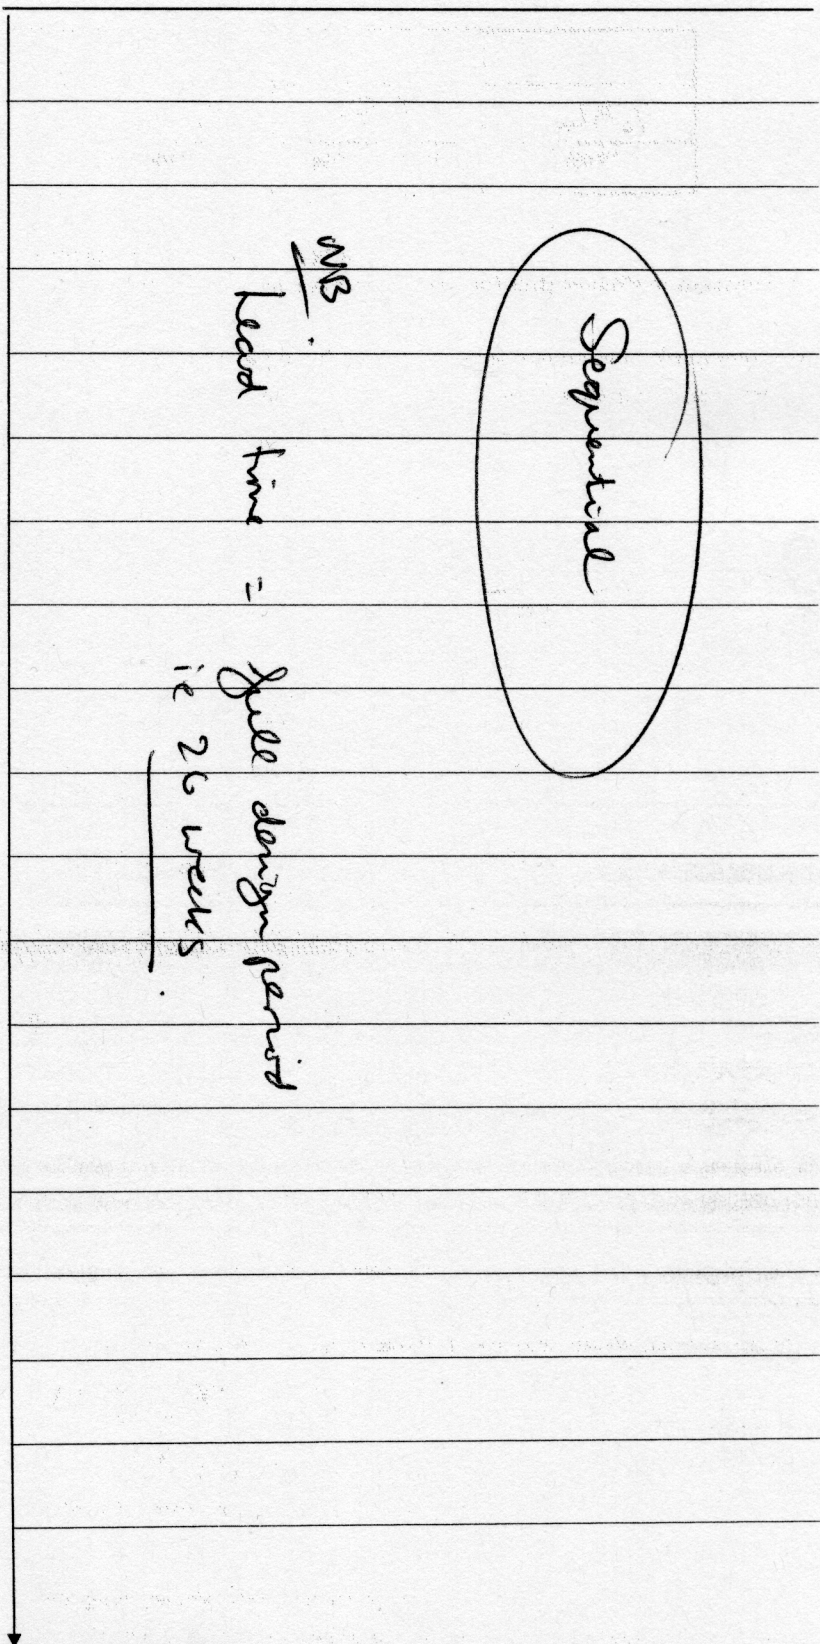 Sequential
NB
Lead time = full design period
ie 26 weeks.